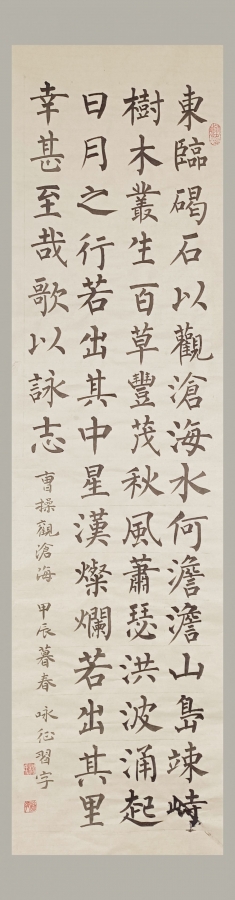 東臨碣石以觀滄海水何澹澹山島竦峙
樹木叢生百草豐茂秋風蕭瑟洪波涌起
日月之行若出其中星漢燦爛若出其里
幸甚至哉歌以詠志
曹操觀滄海 甲辰暮春 咏征習字